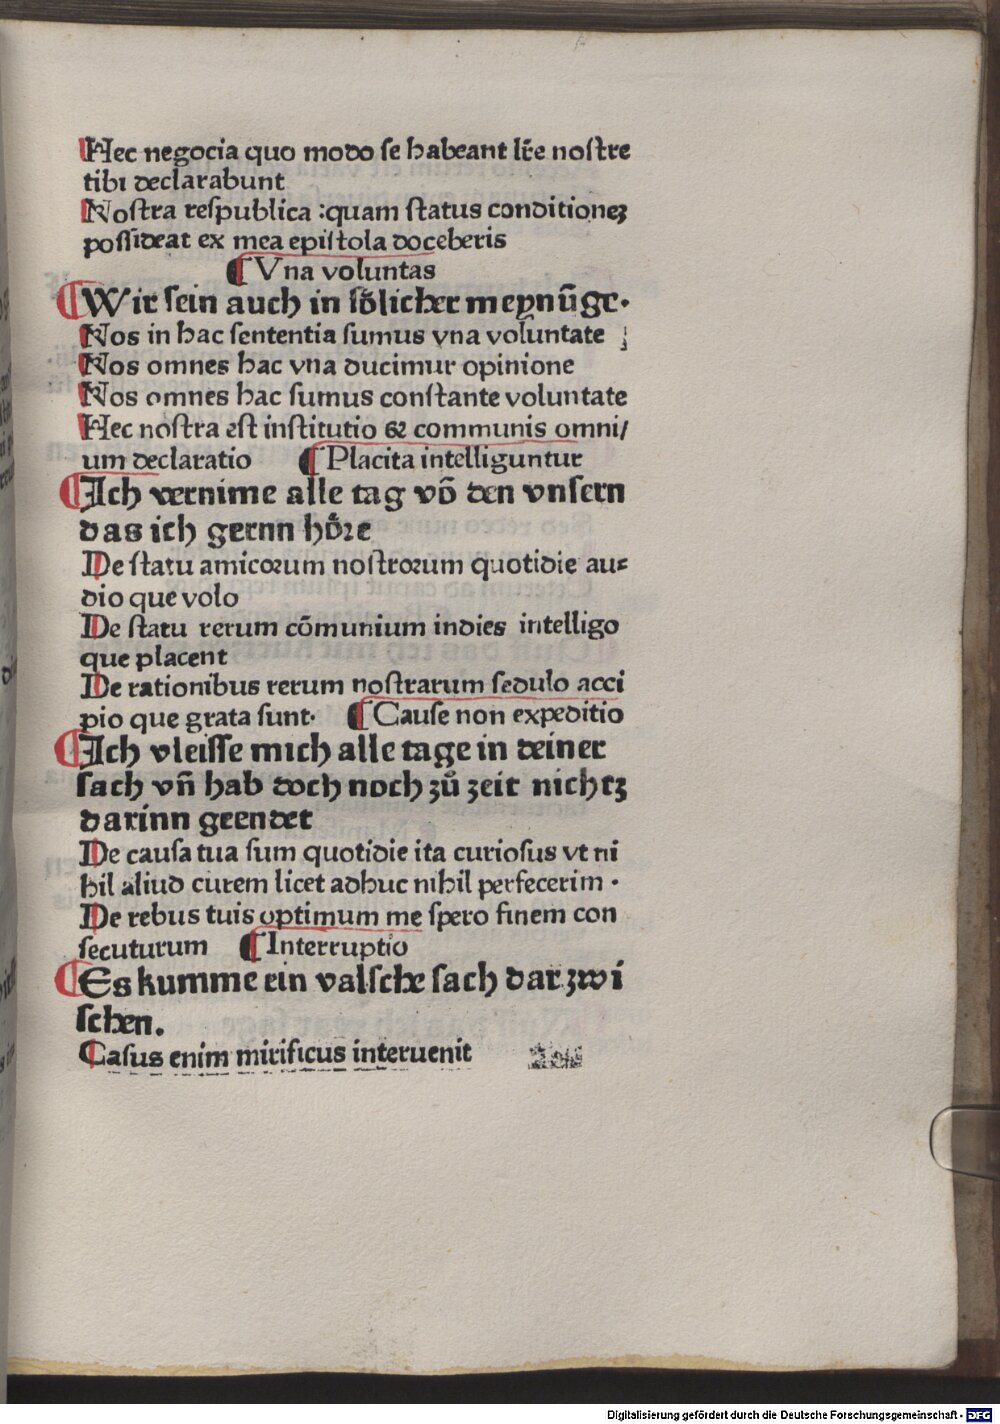 Hec negocia quo modo ſe habeant lr̄e noſtre
tibi declarabunt
Noſtra reſpublica :quam ſtatus conditioneꝫ
poſſideat ex mea epiſtola doceberis
¶ Vna voluntas
¶ Wir ſein auch in ſoͤlicher meynūge·
Nos in hac ſententia ſumus vna voluntate
Nos omnes hac vna ducimur opinione
Nos omnes hac ſumus conſtante voluntate
Hec noſtra eſt inſtitutio & communis omni/
um declaratio ¶ Placita intelliguntur
¶ Ich vernime alle tag vō den vnſern
das ich gernn hoͤꝛe
De ſtatu amicoꝛum noſtroꝛum quotidie au⸗
dio que volo
De ſtatu rerum cōmunium indies intelligo
que placent
De rationibus rerum noſtrarum ſedulo acci
pio que grata ſunt· ¶ Cauſe non expeditio
¶ Ich vleiſſe mich alle tage in deiner
ſach vn̄ hab doch noch zuͦ zeit nichtz
darinn geendet
De cauſa tua ſum quotidie ita curioſus vt ni
hil aliud curem licet adhuc nihil perfecerim ·
De rebus tuis optimum me ſpero finem con
ſecuturum ¶ Interruptio
¶ Es kumme ein valſche ſach dar zwi
ſchen.
Caſus enim mirificus interuenit
Digitalisierung gefördert durch die Deutsche Forschungsgemeinschaft - DFG